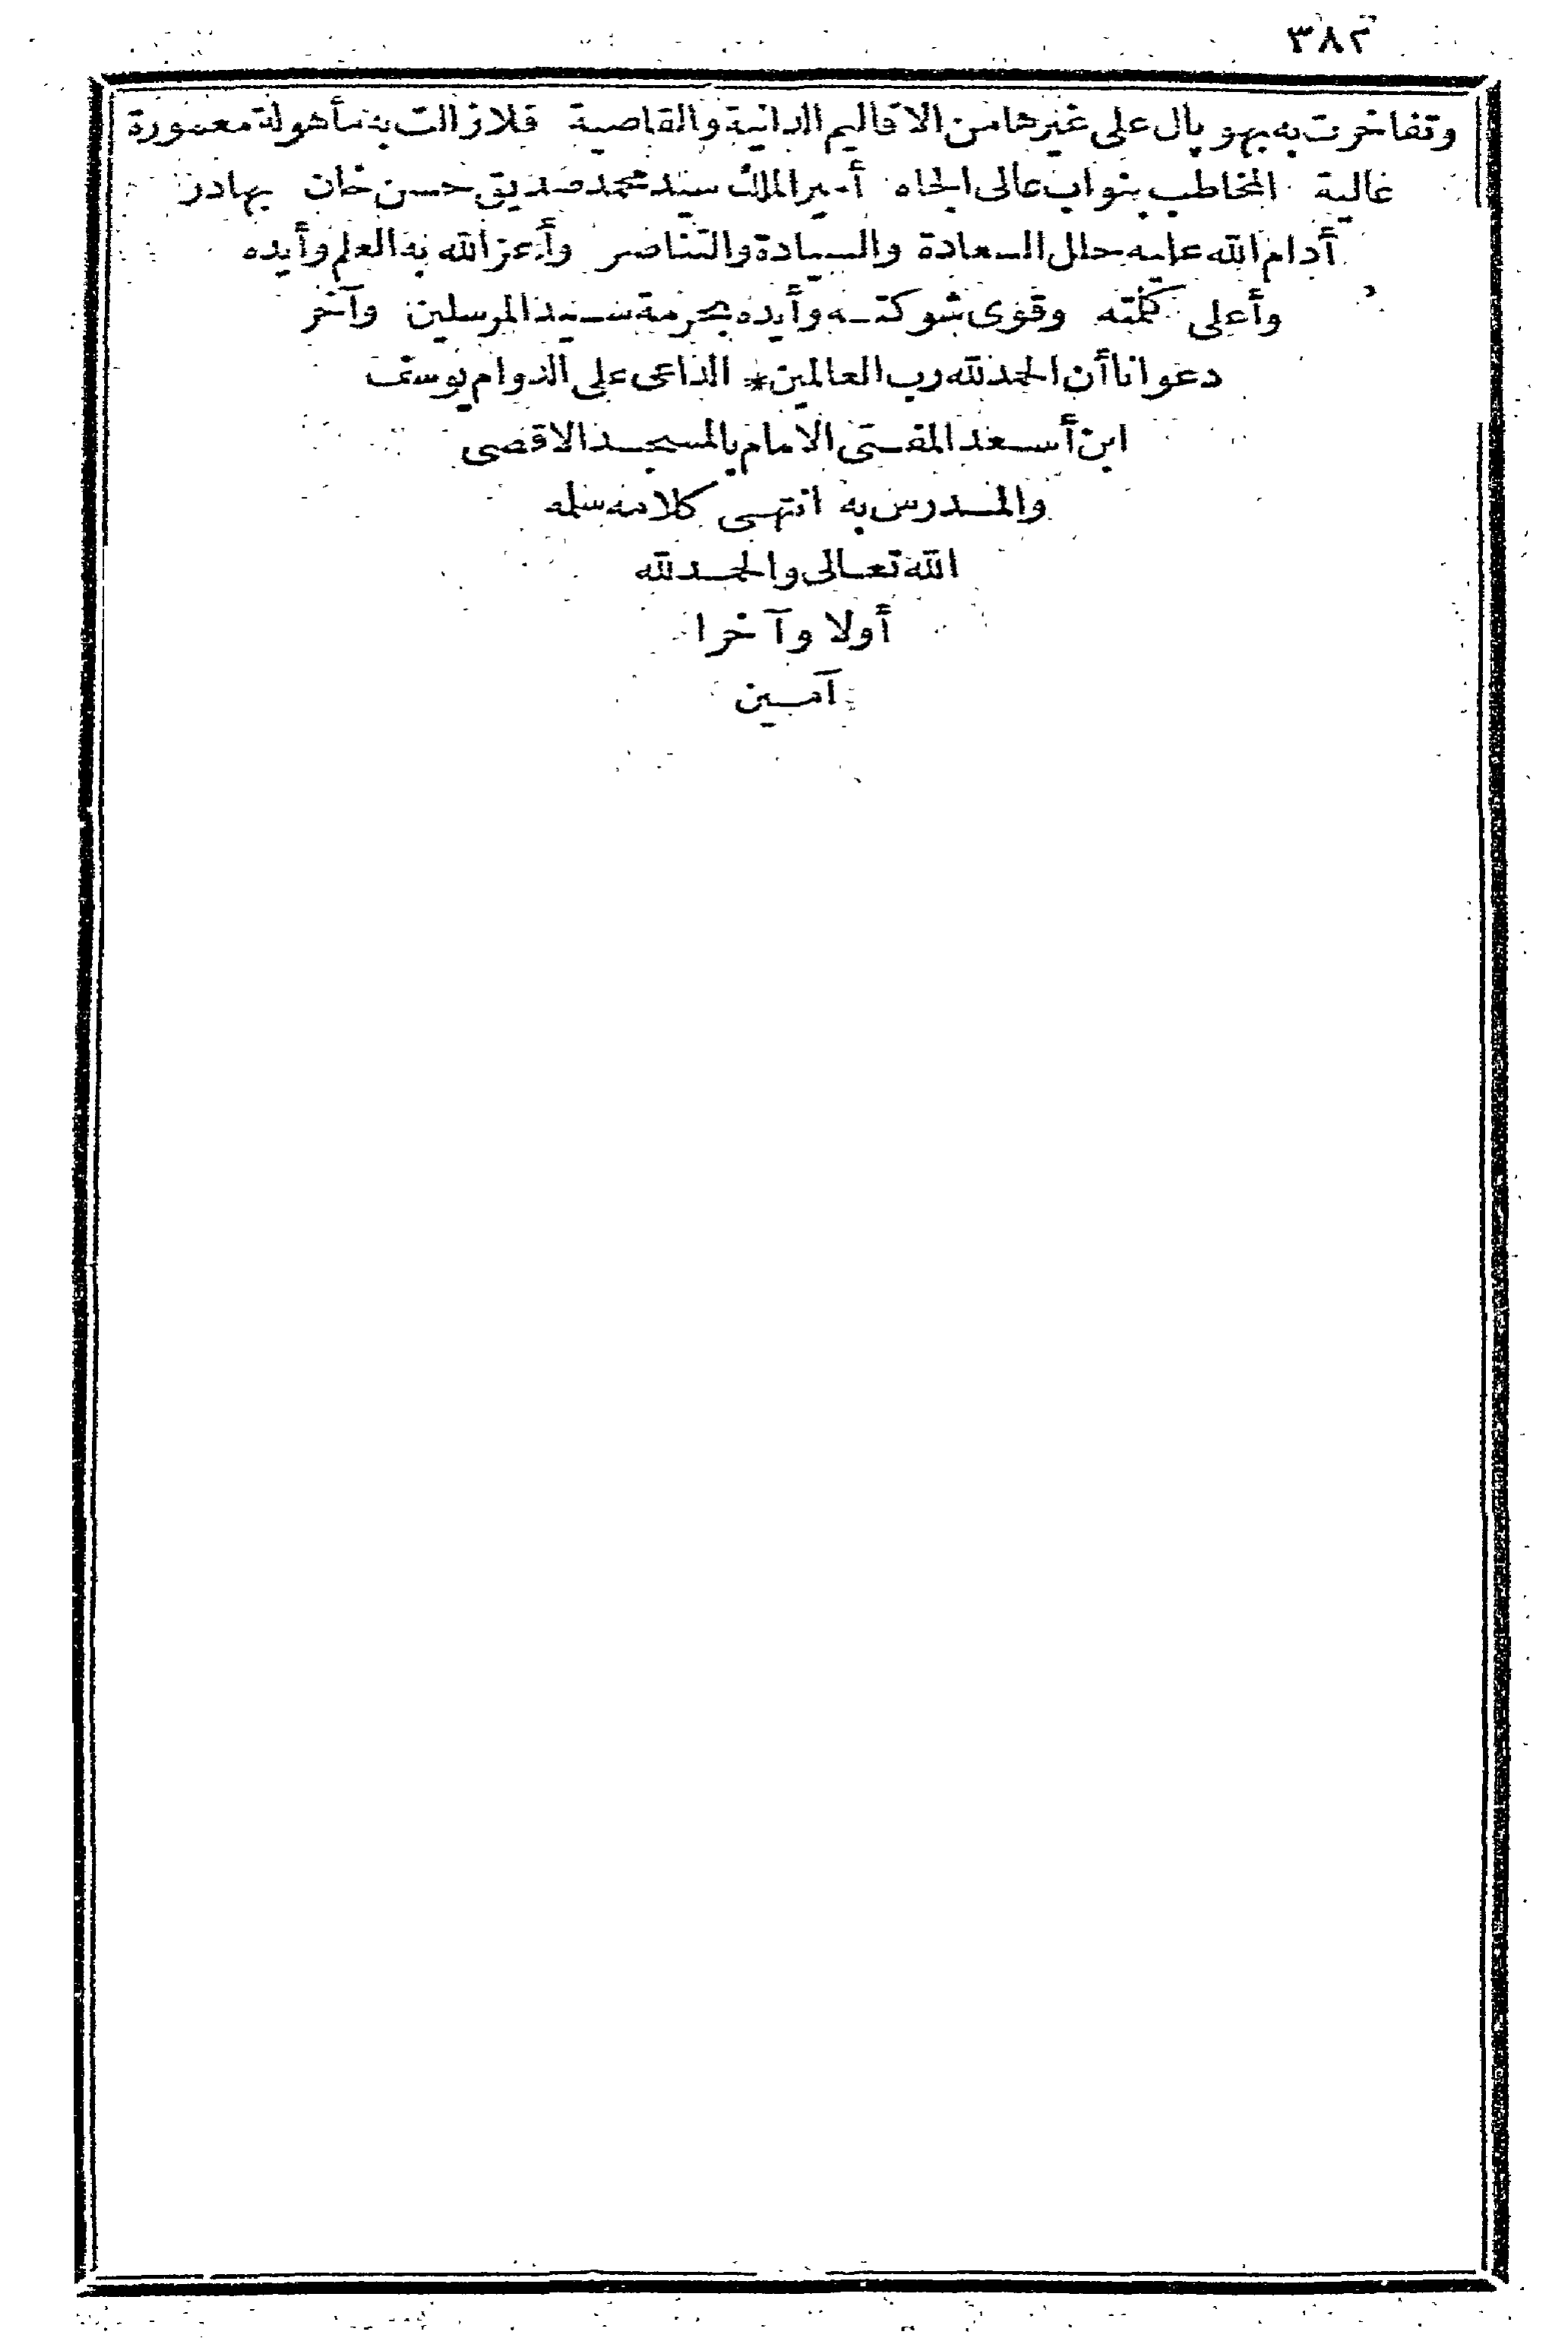 ٣٨٢
وتفاخرت به بهوپال على غيرها من الاقاليم الدانية والقاصية فلا زالت به مأهولة معمورة
غالية المخاطب بنواب عالى الجاه أمير الملك سيد محمد صديق حسن خان بهادر
أدام الله عليه حلل السعادة والسيادة والتناصر وأعز الله به العلم وأيده
وأعلى كلمته وقوى شوكته وأيده بحرمة سيد المرسلين وآخر
دعوانا أن الحمد لله رب العالمين * الداعى على الدوام يوسف
ابن أسعد المفتى الامام بالمسجد الاقصى
والمدرس به انتهى كلامه سلمه
الله تعالى والحمد لله
أولا وآخرا
آمين